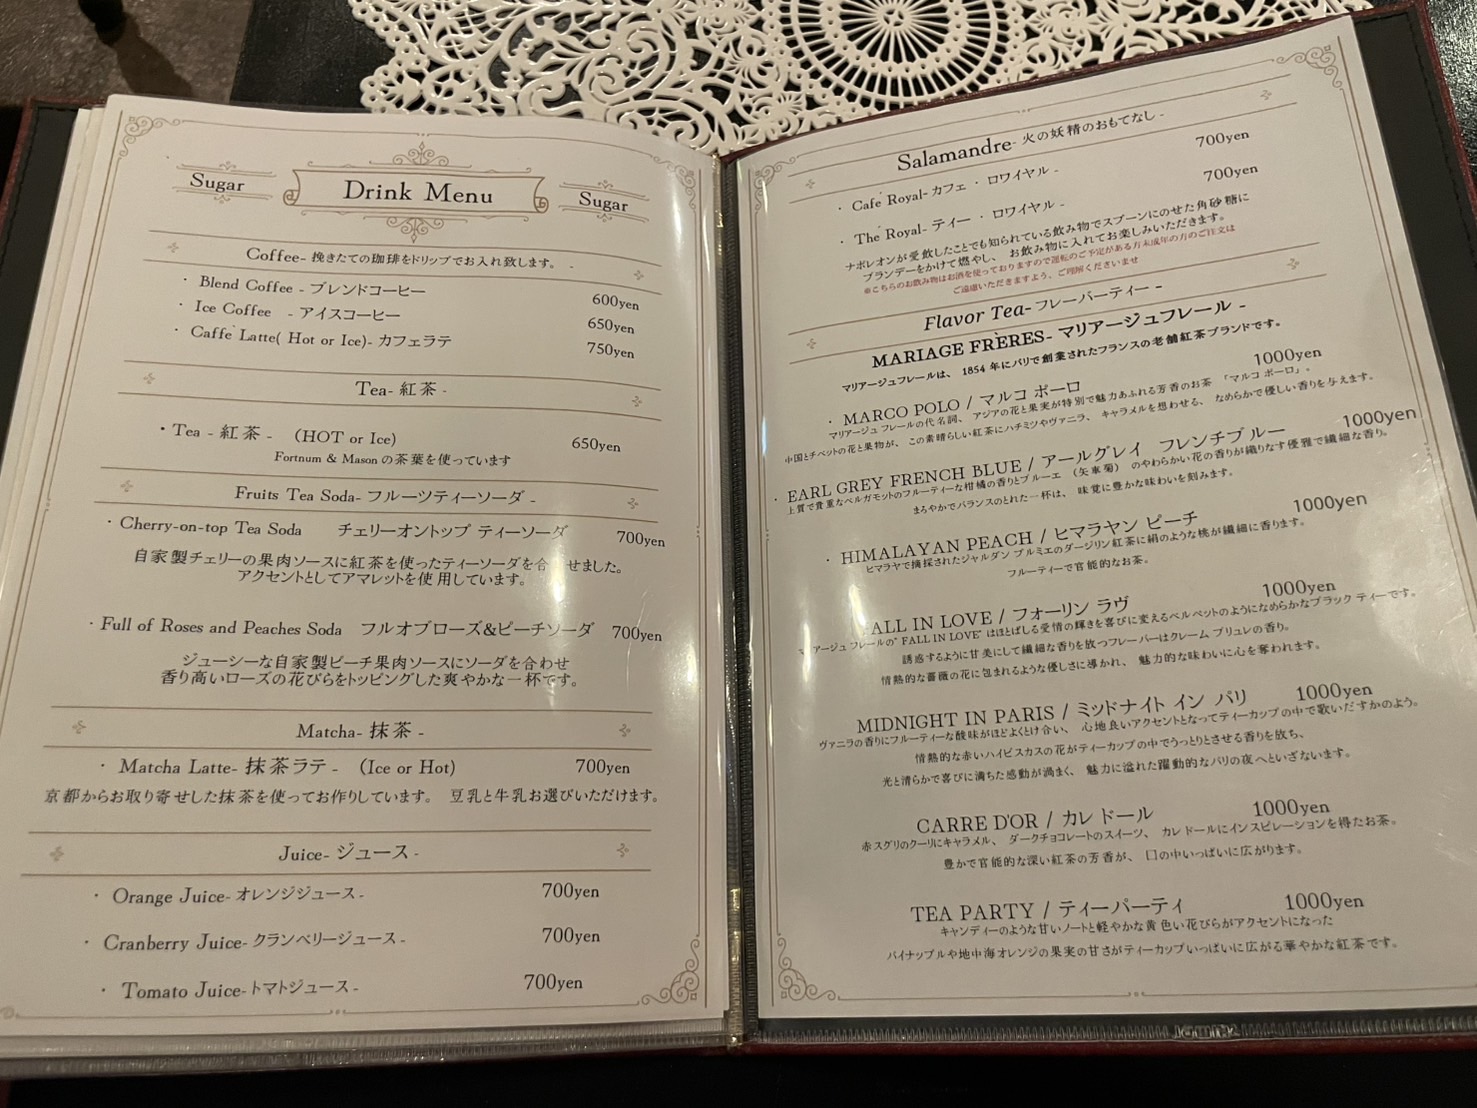 Sugar
Drink Menu
Sugar
Coffee- 挽きたての珈琲をドリップでお入れ致します。 -
・ Blend Coffee - ブレンドコーヒー 600yen
・ Ice Coffee - アイスコーヒー 650yen
・ Caffe Latte( Hot or Ice)- カフェラテ 750yen
Tea- 紅茶 -
・Tea - 紅茶 - (HOT or Ice) 650yen
Fortnum & Mason の茶葉を使っています
Fruits Tea Soda- フルーツティーソーダ -
・Cherry-on-top Tea Soda チェリーオントップ ティーソーダ 700yen
自家製チェリーの果肉ソースに紅茶を使ったティーソーダを合 せました。
アクセントとしてアマレットを使用しています。
・Full of Roses and Peaches Soda フルオブローズ&ピーチソーダ 700yen
ジューシーな自家製ピーチ果肉ソースにソーダを合わせ
香り高いローズの花びらをトッピングした爽やかな一杯です。
Matcha- 抹茶 -
・ Matcha Latte- 抹茶ラテ - (Ice or Hot) 700yen
京都からお取り寄せした抹茶を使ってお作りしています。 豆乳と牛乳お選びいただけます。
Juice- ジュース -
・ Orange Juice- オレンジジュース - 700yen
・ Cranberry Juice- クランベリージュース - 700yen
・ Tomato Juice- トマトジュース - 700yen
Salamandre- 火の妖精のおもてなし -
・ Cafe Royal- カフェ ・ ロワイヤル - 700yen
・ The Royal- ティー ・ ロワイヤル - 700yen
ナポレオンが愛飲したことでも知られている飲み物でスプーンにのせた角砂糖に
ブランデーをかけて燃やし、 お飲み物に入れてお楽しみいただきます。
※こちらのお飲み物はお酒を使っておりますので運転のご予定がある方未成年の方のご注文は
ご遠慮いただきますよう、ご理解くださいませ
Flavor Tea- フレーバーティー -
MARIAGE FRÈRES- マリアージュフレール -
マリアージュフレールは、 1854 年にパリで創業されたフランスの老舗紅茶ブランドです。
・ MARCO POLO / マルコ ポーロ 1000yen
マリアージュ フレールの代名詞、 アジアの花と果実が特別で魅力あふれる芳香のお茶 「マルコ ポーロ」。
中国とチベットの花と果物が、 この素晴らしい紅茶にハチミツやヴァニラ、 キャラメルを想わせる、 なめらかで優しい香りを与えます。
・ EARL GREY FRENCH BLUE / アールグレイ フレンチブルー 1000yen
上質で貴重なベルガモットのフルーティーな柑橘の香りとブルーエ （矢車菊） のやわらかい花の香りが織りなす優雅で繊細な香り。
まろやかでバランスのとれた一杯は、 味覚に豊かな味わいを刻みます。
・ HIMALAYAN PEACH / ヒマラヤン ピーチ 1000yen
ヒマラヤで摘採されたジャルダン プルミエのダージリン紅茶に絹のような桃が繊細に香ります。
フルーティーで官能的なお茶。
FALL IN LOVE / フォーリン ラヴ 1000yen
マリアージュ フレールの" FALL IN LOVE" はほとばしる愛情の輝きを喜びに変えるベルベットのようになめらかなブラック ティーです。
誘惑するように甘美にして繊細な香りを放つフレーバーはクレーム ブリュレの香り。
情熱的な薔薇の花に包まれるような優しさに導かれ、 魅力的な味わいに心を奪われます。
MIDNIGHT IN PARIS / ミッドナイト イン パリ 1000yen
ヴァニラの香りにフルーティーな酸味がほどよくとけ合い、 心地良いアクセントとなってティーカップの中で歌いだすかのよう。
情熱的な赤いハイビスカスの花がティーカップの中でうっとりとさせる香りを放ち、
光と清らかで喜びに満ちた感動が渦まく、 魅力に溢れた躍動的なパリの夜へといざないます。
CARRE D'OR / カレ ドール 1000yen
赤スグリのクーリにキャラメル、 ダークチョコレートのスイーツ、 カレ ドールにインスピレーションを得たお茶。
豊かで官能的な深い紅茶の芳香が、 口の中いっぱいに広がります。
TEA PARTY / ティーパーティ 1000yen
キャンディーのような甘いノートと軽やかな黄色い花びらがアクセントになった
パイナップルや地中海オレンジの果実の甘さがティーカップいっぱいに広がる華やかな紅茶です。